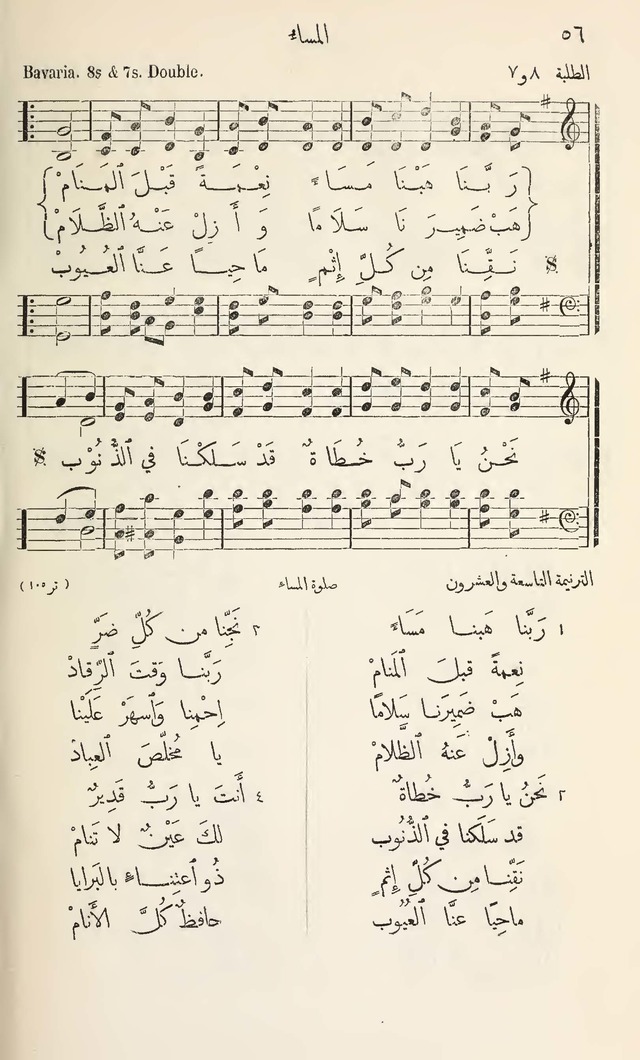 ٥٦ المساء
الطلبة ٨ و٧ Bavaria. 8s & 7s. Double.
رَبَّنَا هَبْنَا مَسَاءً نِعْمَةً قَبْلَ ٱلْمَنَامْ
هَبْ ضَمِيرَنَا سَلَامًا وَأَزِلْ عَنْهُ ٱلظَّلَامْ
نَقِّنَا مِن كُلِّ إِثْمٍ مَاحِيًا عَنَّا ٱلْعُيُوبْ
نَحْنُ يَا رَبُّ خُطَاةٌ قَدْ سَلَكْنَا فِي ٱلذُّنُوبْ
الترنيمة التاسعة والعشرون صلوة المساء (تر ١٠٥)
١ رَبَّنَا هَبنا مَسَاءً
نِعمةً قبلَ ٱلمَنامْ
هَبْ ضَمِيرَنا سَلامًا
وأَزِلْ عَنهُ ٱلظلامْ
٢ نَحنُ يا رَبُّ خُطاةٌ
قد سَلَكنا في ٱلذُّنُوب
نَقِّنا مِن كُلِّ إِثمٍ
ماحِيًا عنَّا ٱلعُيُوب
٣ نَجِّنا من كُلِّ ضَرٍّ
رَبَّنا وَقتَ ٱلرِّقادْ
اِحْمِنا وَٱسهَرْ عَلَيْنا
يا مُخلِّصَ ٱلعِبادْ
٤ أَنتَ يا رَبُّ قَدِيرٌ
لكَ عَيْنٌ لا تَنامْ
ذُو ٱعتِناءٍ بالبَرايا
حافظٌ كُلَّ الأَنامْ